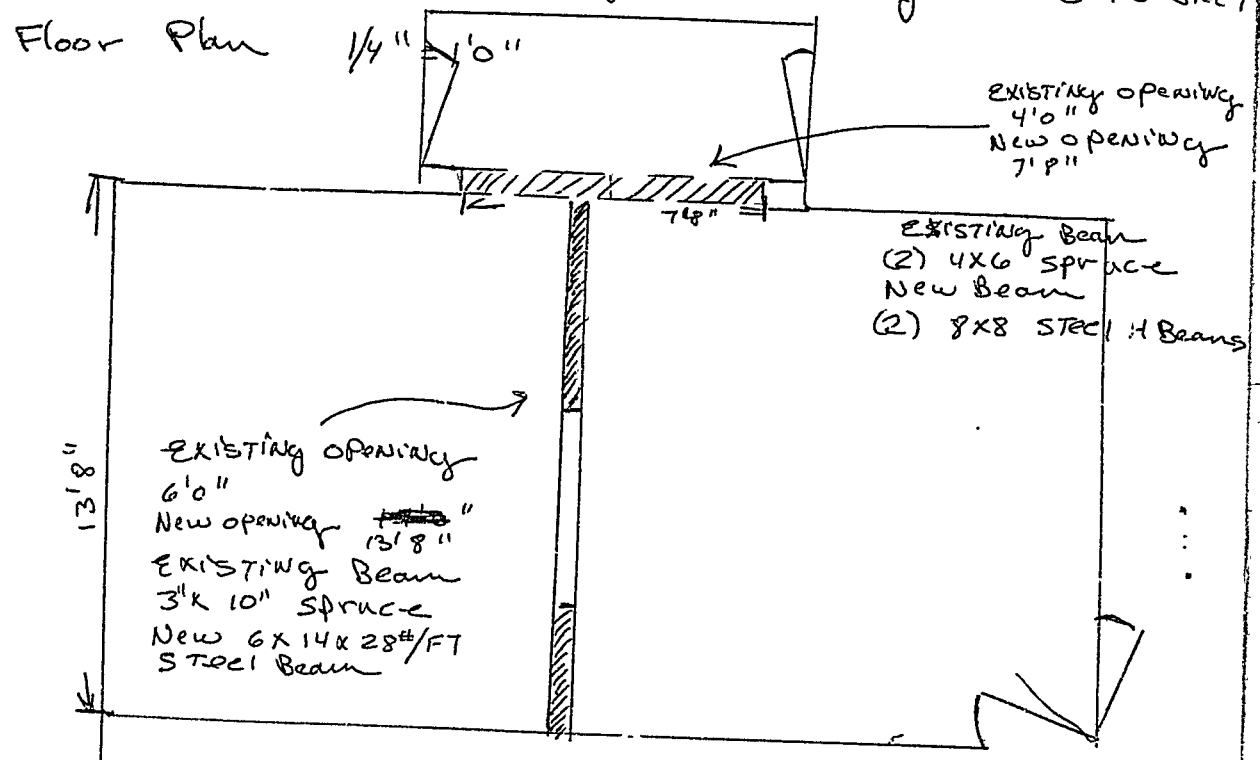 Floor Plan 1/4" = 1'0"
EXISTING OPENING
4'0"
New OPENING
7'8"
7'8"
EXISTING Beam
(2) 4X6 Spruce
New Beam
(2) 8X8 STEEL H Beams
13'8"
EXISTING OPENING
6'0"
New opening "
13'8"
EXISTING Beam
3"X 10" Spruce
New 6X14X28#/FT
STEEL Beam